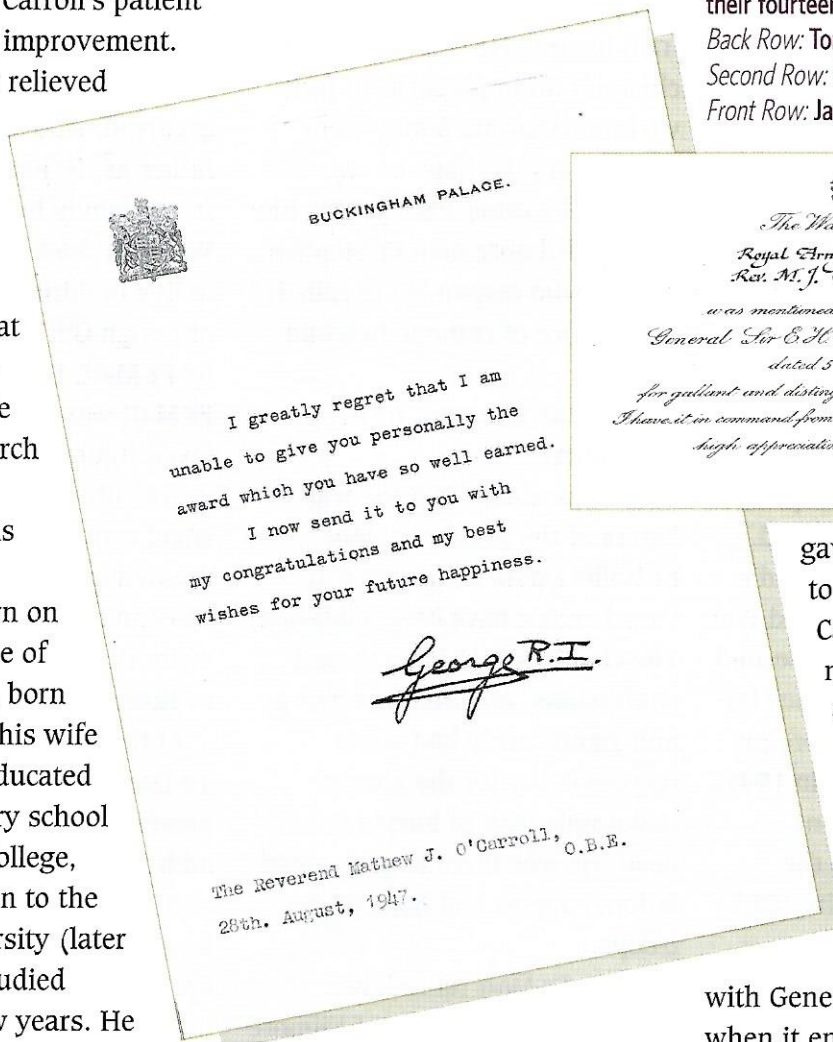 Carroll's patient
improvement.
relieved
at
e
rch
s
n on
e of
born
his wife
ducated
ry school
ollege,
n to the
rsity (later
udied
w years. He
BUCKINGHAM PALACE.
I greatly regret that I am
unable to give you personally the
award which you have so well earned.
I now send it to you with
my congratulations and my best
wishes for your future happiness.
George R.I.
The Reverend Mathew J. O'Carroll, O.B.E.
28th. August, 1947.
their fourteen
Back Row: To
Second Row:
Front Row: Ja
The Wa
Royal Arm
Rev. M. J.
was mentioned
General Sir E. H.
dated 5
for gallant and disting
I have it in command from
high appreciatio
gav
to
C
r
with Gene
when it en